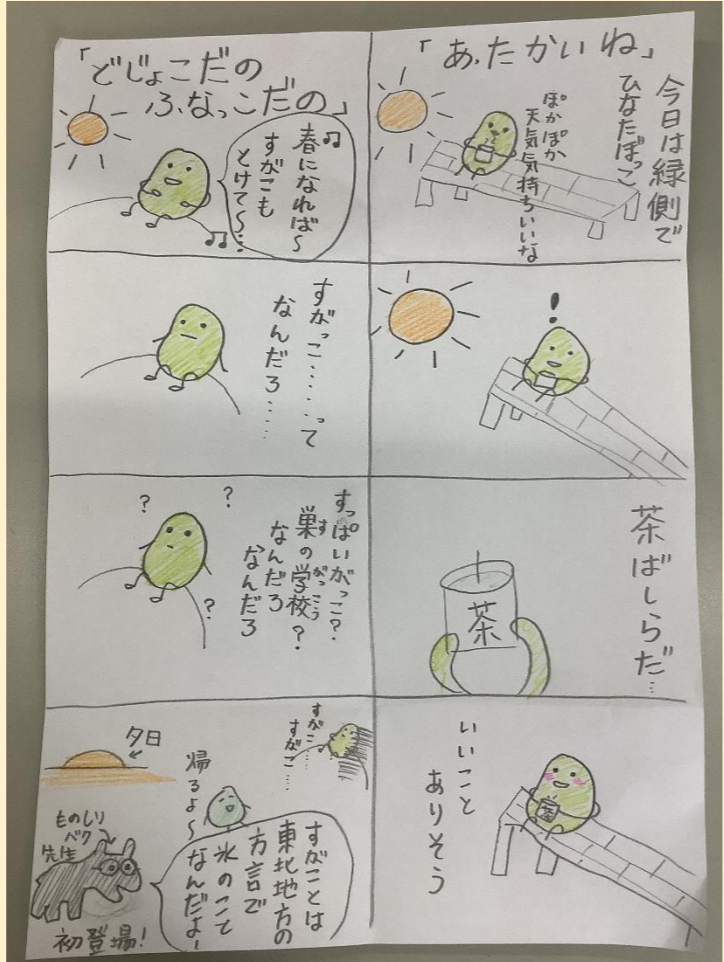 「あったかいね」
今日は縁側で
ひなたぼっこ
ぽかぽか
天気気持ちいいな
!
茶ばしらだ…
茶
いいこと
ありそう
茶
「どじょこだの
ふなっこだの」
春になれば～
すがこも
とけて～…
すがっこ……って
なんだろ……
?
?
?
すっぱいがっこ?
巣の学校?
すがっこう
なんだろ
なんだろ
すがこ……
すがこ……
夕日
帰るよ～
すがことは
東北地方の
方言で
氷のこて
なんだよー
ものしり
バク
先生
初登場!